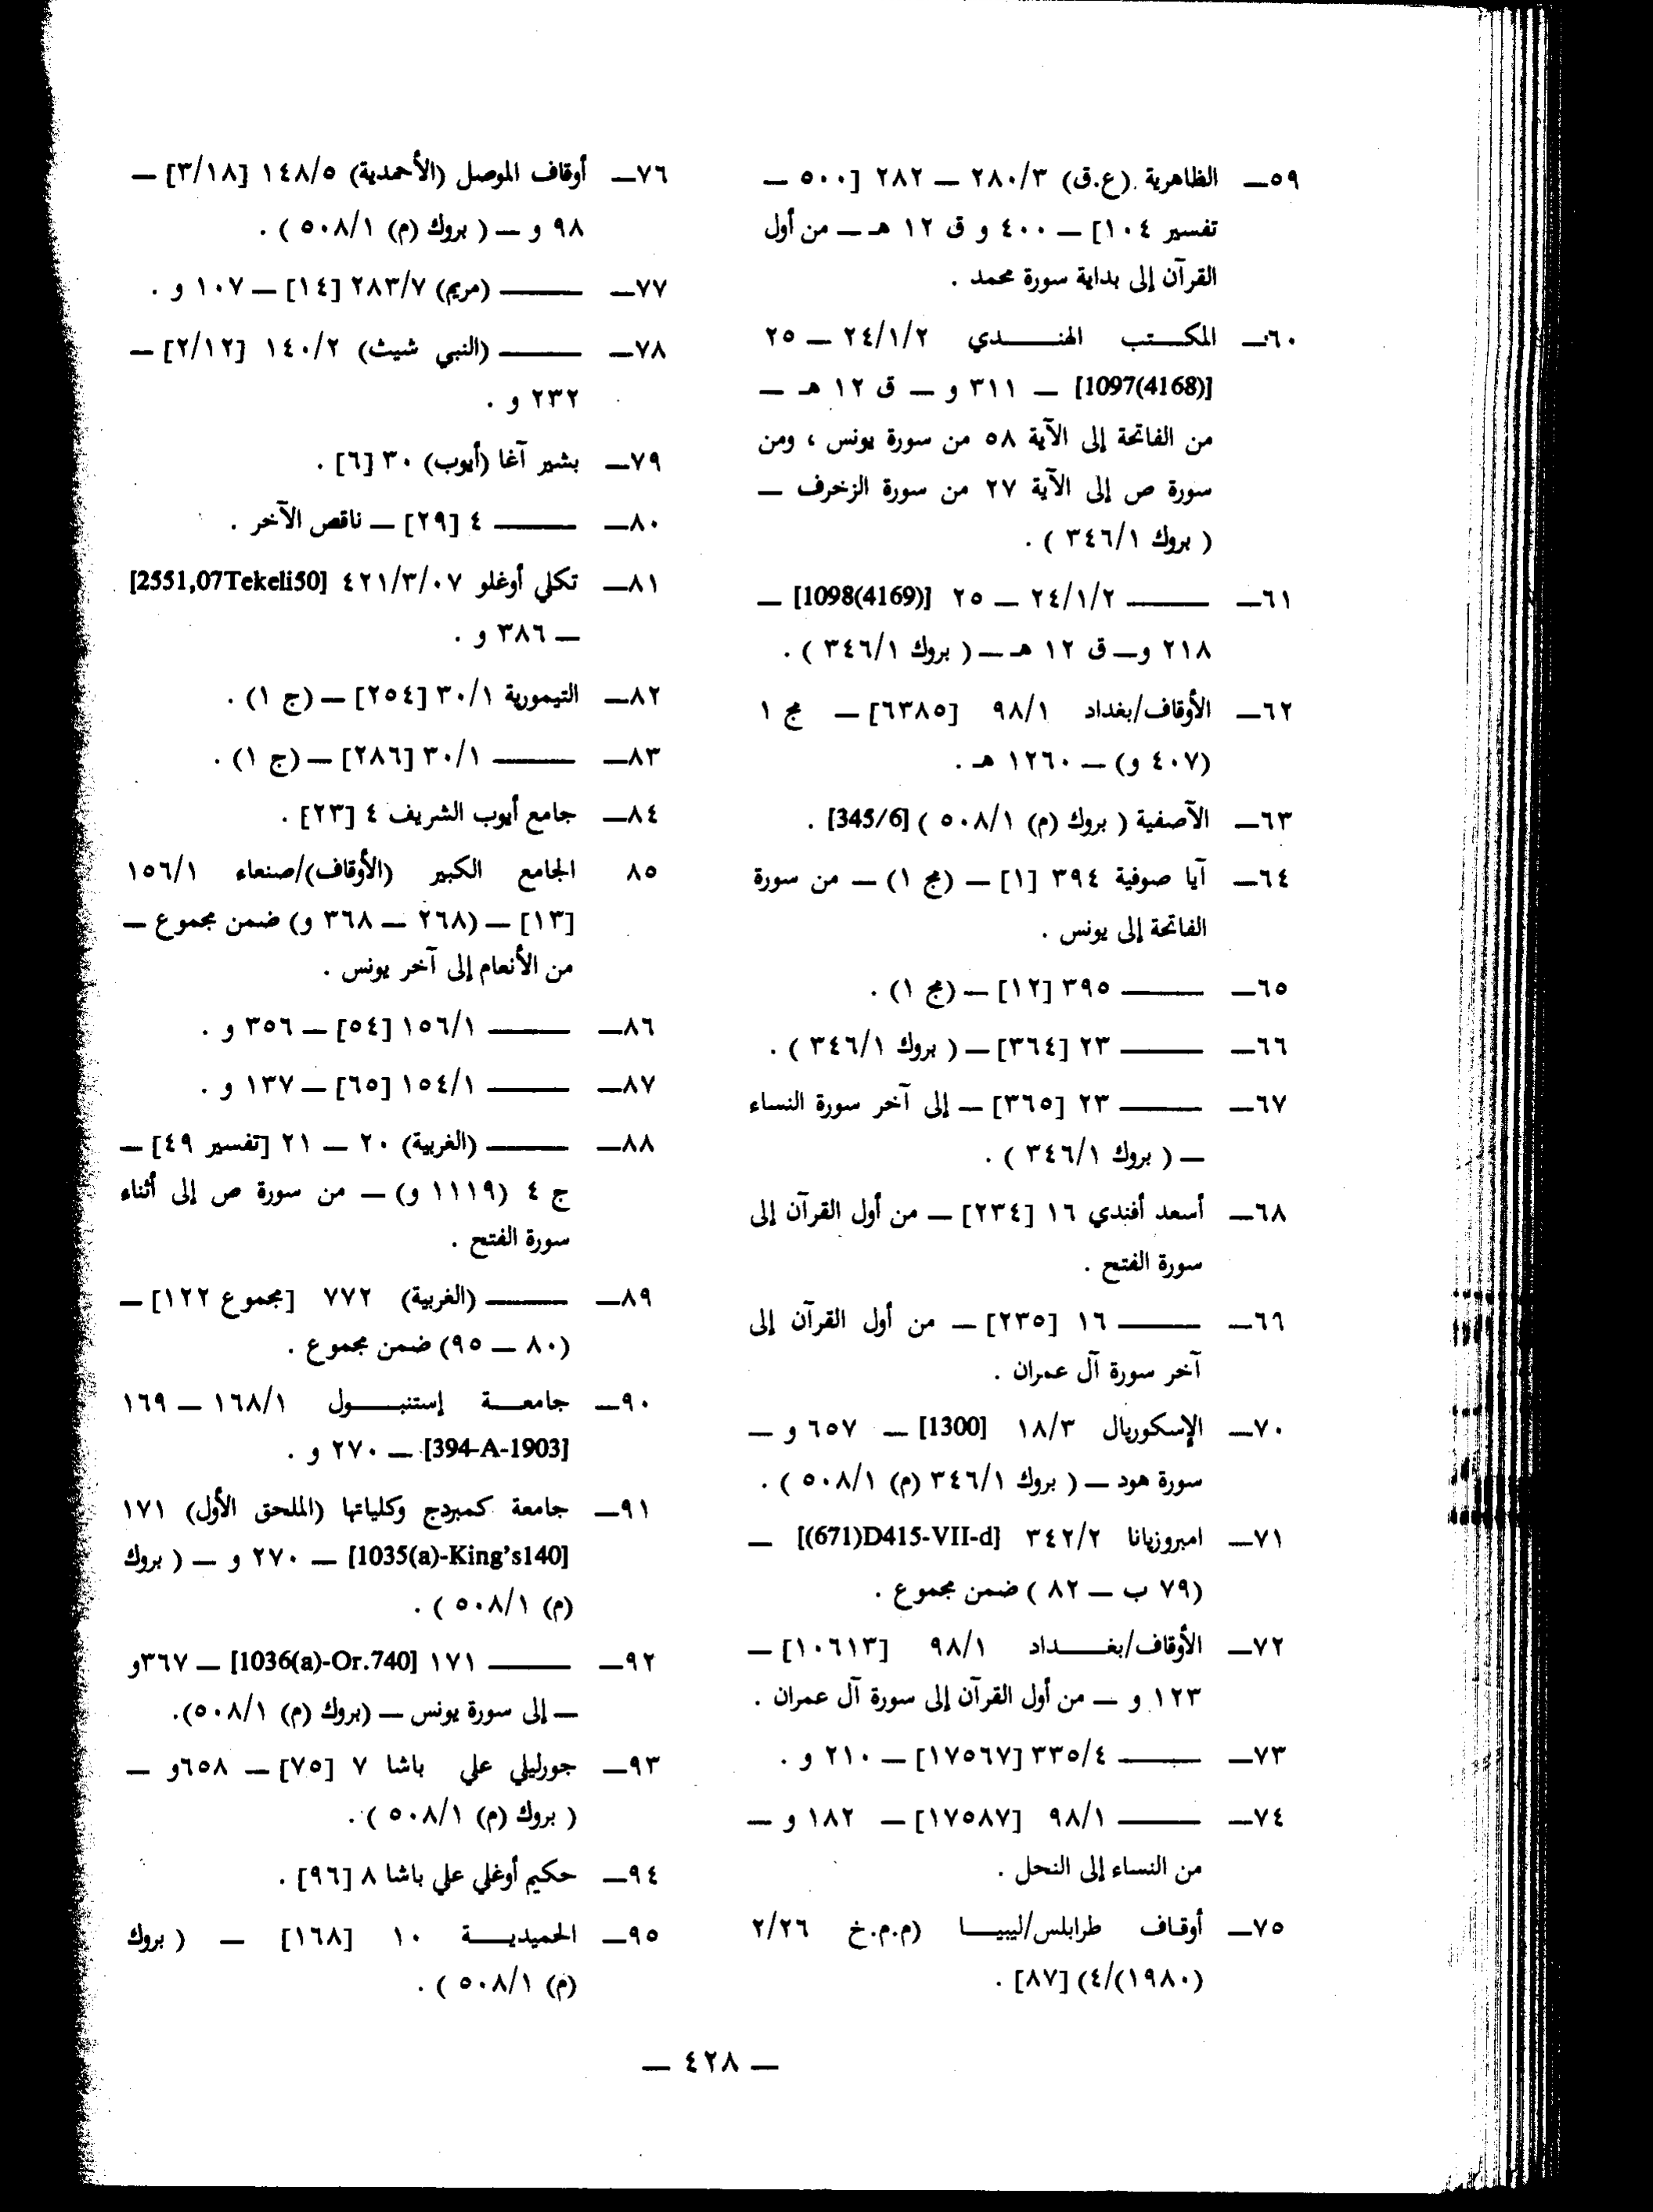 ٥٩ــ الظاهرية (ع.ق) ٢٨٠/٣ ــ ٢٨٢ [٥٠٠ ــ
تفسير ١٠٤] ــ ٤٠٠ و ق ١٢ هـ ــ من أول
القرآن إلى بداية سورة محمد .
٦٠ــ المكـــتب الهنـــــدي ٢٤/١/٢ ــ ٢٥
[1097(4168)] ــ ٣١١ و ــ ق ١٢ هـ ــ
من الفاتحة إلى الآية ٥٨ من سورة يونس ، ومن
سورة ص إلى الآية ٢٧ من سورة الزخرف ــ
( بروك ٣٤٦/١ ) .
٦١ــ ـــــــ ٢٤/١/٢ ــ ٢٥ [1098(4169)] ــ
٢١٨ و ــ ق ١٢ هـ ــ ( بروك ٣٤٦/١ ) .
٦٢ــ الأوقاف/بغداد ٩٨/١ [٦٣٨٥] ــ مج ١
(٤٠٧ و) ــ ١٢٦٠ هـ .
٦٣ــ الآصفية ( بروك (م) ٥٠٨/١ ) [345/6] .
٦٤ــ آيا صوفية ٣٩٤ [١] ــ (مج ١) ــ من سورة
الفاتحة إلى يونس .
٦٥ــ ـــــــ ٣٩٥ [١٢] ــ (مج ١) .
٦٦ــ ـــــــ ٢٣ [٣٦٤] ــ ( بروك ٣٤٦/١ ) .
٦٧ــ ـــــــ ٢٣ [٣٦٥] ــ إلى آخر سورة النساء
ــ ( بروك ٣٤٦/١ ) .
٦٨ــ أسعد أفندي ١٦ [٢٣٤] ــ من أول القرآن إلى
سورة الفتح .
٦٩ــ ـــــــ ١٦ [٢٣٥] ــ من أول القرآن إلى
آخر سورة آل عمران .
٧٠ــ الإسكوريال ١٨/٣ [1300] ــ ٦٥٧ و ــ
سورة هود ــ ( بروك ٣٤٦/١ (م) ٥٠٨/١ ) .
٧١ــ امبروزيانا ٣٤٢/٢ [(671)D415-VII-d] ــ
(٧٩ ب ــ ٨٢ ) ضمن مجموع .
٧٢ــ الأوقاف/بغـــــداد ٩٨/١ [١٠٦١٣] ــ
١٢٣ و ــ من أول القرآن إلى سورة آل عمران .
٧٣ــ ـــــــ ٣٣٥/٤ [١٧٥٦٧] ــ ٢١٠ و .
٧٤ــ ـــــــ ٩٨/١ [١٧٥٨٧] ــ ١٨٢ و ــ
من النساء إلى النحل .
٧٥ــ أوقـاف طرابلس/ليبيــا (م.م.خ ٢/٢٦
(١٩٨٠)/٤) [٨٧] .
٧٦ــ أوقاف الموصل (الأحمدية) ١٤٨/٥ [٣/١٨] ــ
٩٨ و ــ ( بروك (م) ٥٠٨/١ ) .
٧٧ــ ـــــــ (مريم) ٢٨٣/٧ [١٤] ــ ١٠٧ و .
٧٨ــ ـــــــ (النبي شيث) ١٤٠/٢ [٢/١٢] ــ
٢٣٢ و .
٧٩ــ بشير آغا (أيوب) ٣٠ [٦] .
٨٠ــ ـــــــ ٤ [٢٩] ــ ناقص الآخر .
٨١ــ تكلي أوغلو ٤٢١/٣/٠٧ [2551,07Tekeli50]
ــ ٣٨٦ و .
٨٢ــ التيمورية ٣٠/١ [٢٥٤] ــ (ج ١) .
٨٣ــ ـــــــ ٣٠/١ [٢٨٦] ــ (ج ١) .
٨٤ــ جامع أيوب الشريف ٤ [٢٣] .
٨٥ الجامع الكبير (الأوقاف)/صنعاء ١٥٦/١
[١٣] ــ (٢٦٨ ــ ٣٦٨ و) ضمن مجموع ــ
من الأنعام إلى آخر يونس .
٨٦ــ ـــــــ ١٥٦/١ [٥٤] ــ ٣٥٦ و .
٨٧ــ ـــــــ ١٥٤/١ [٦٥] ــ ١٣٧ و .
٨٨ــ ـــــــ (الغربية) ٢٠ ــ ٢١ [تفسير ٤٩] ــ
ج ٤ (١١١٩ و) ــ من سورة ص إلى أثناء
سورة الفتح .
٨٩ــ ـــــــ (الغربية) ٧٧٢ [مجموع ١٢٢] ــ
(٨٠ ــ ٩٥) ضمن مجموع .
٩٠ــ جامعـــة إستنبـــــول ١٦٨/١ ــ ١٦٩
[394-A-1903] ــ ٢٧٠ و .
٩١ــ جامعة كمبردج وكلياتها (الملحق الأول) ١٧١
[1035(a)-King's140] ــ ٢٧٠ و ــ ( بروك
(م) ٥٠٨/١ ) .
٩٢ــ ـــــــ ١٧١ [1036(a)-Or.740] ــ ٣٦٧و
ــ إلى سورة يونس ــ (بروك (م) ٥٠٨/١).
٩٣ــ جورليلي علي باشا ٧ [٧٥] ــ ٦٥٨و ــ
( بروك (م) ٥٠٨/١ ) .
٩٤ــ حكيم أوغلي علي باشا ٨ [٩٦] .
٩٥ــ الحميديـــــة ١٠ [١٦٨] ــ ( بروك
(م) ٥٠٨/١ ) .
ــ ٤٢٨ ــ